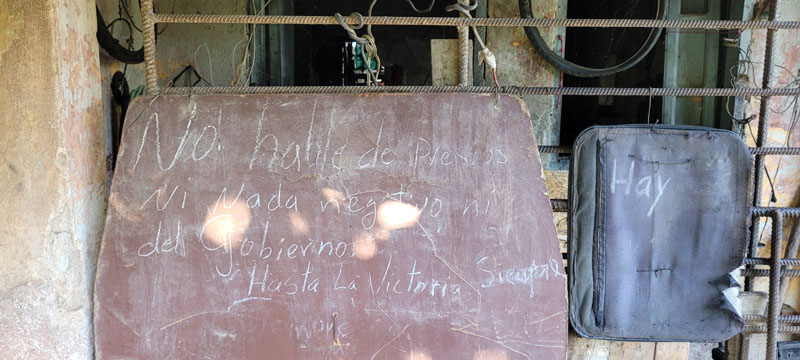 No. hable de Precios
Ni Nada negativo ni
del Gobierno.
Hasta La Victoria Siempre
Hay